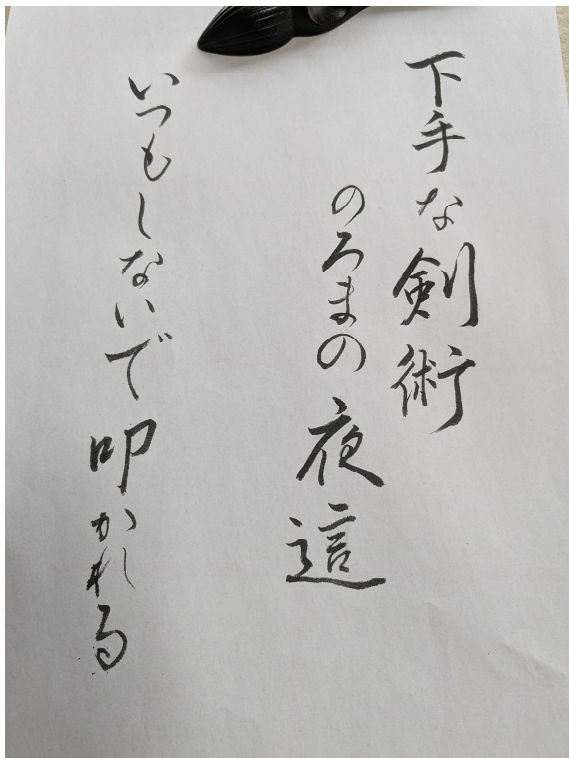 下手な剣術
のろまの夜這
いつもしないで叩かれる